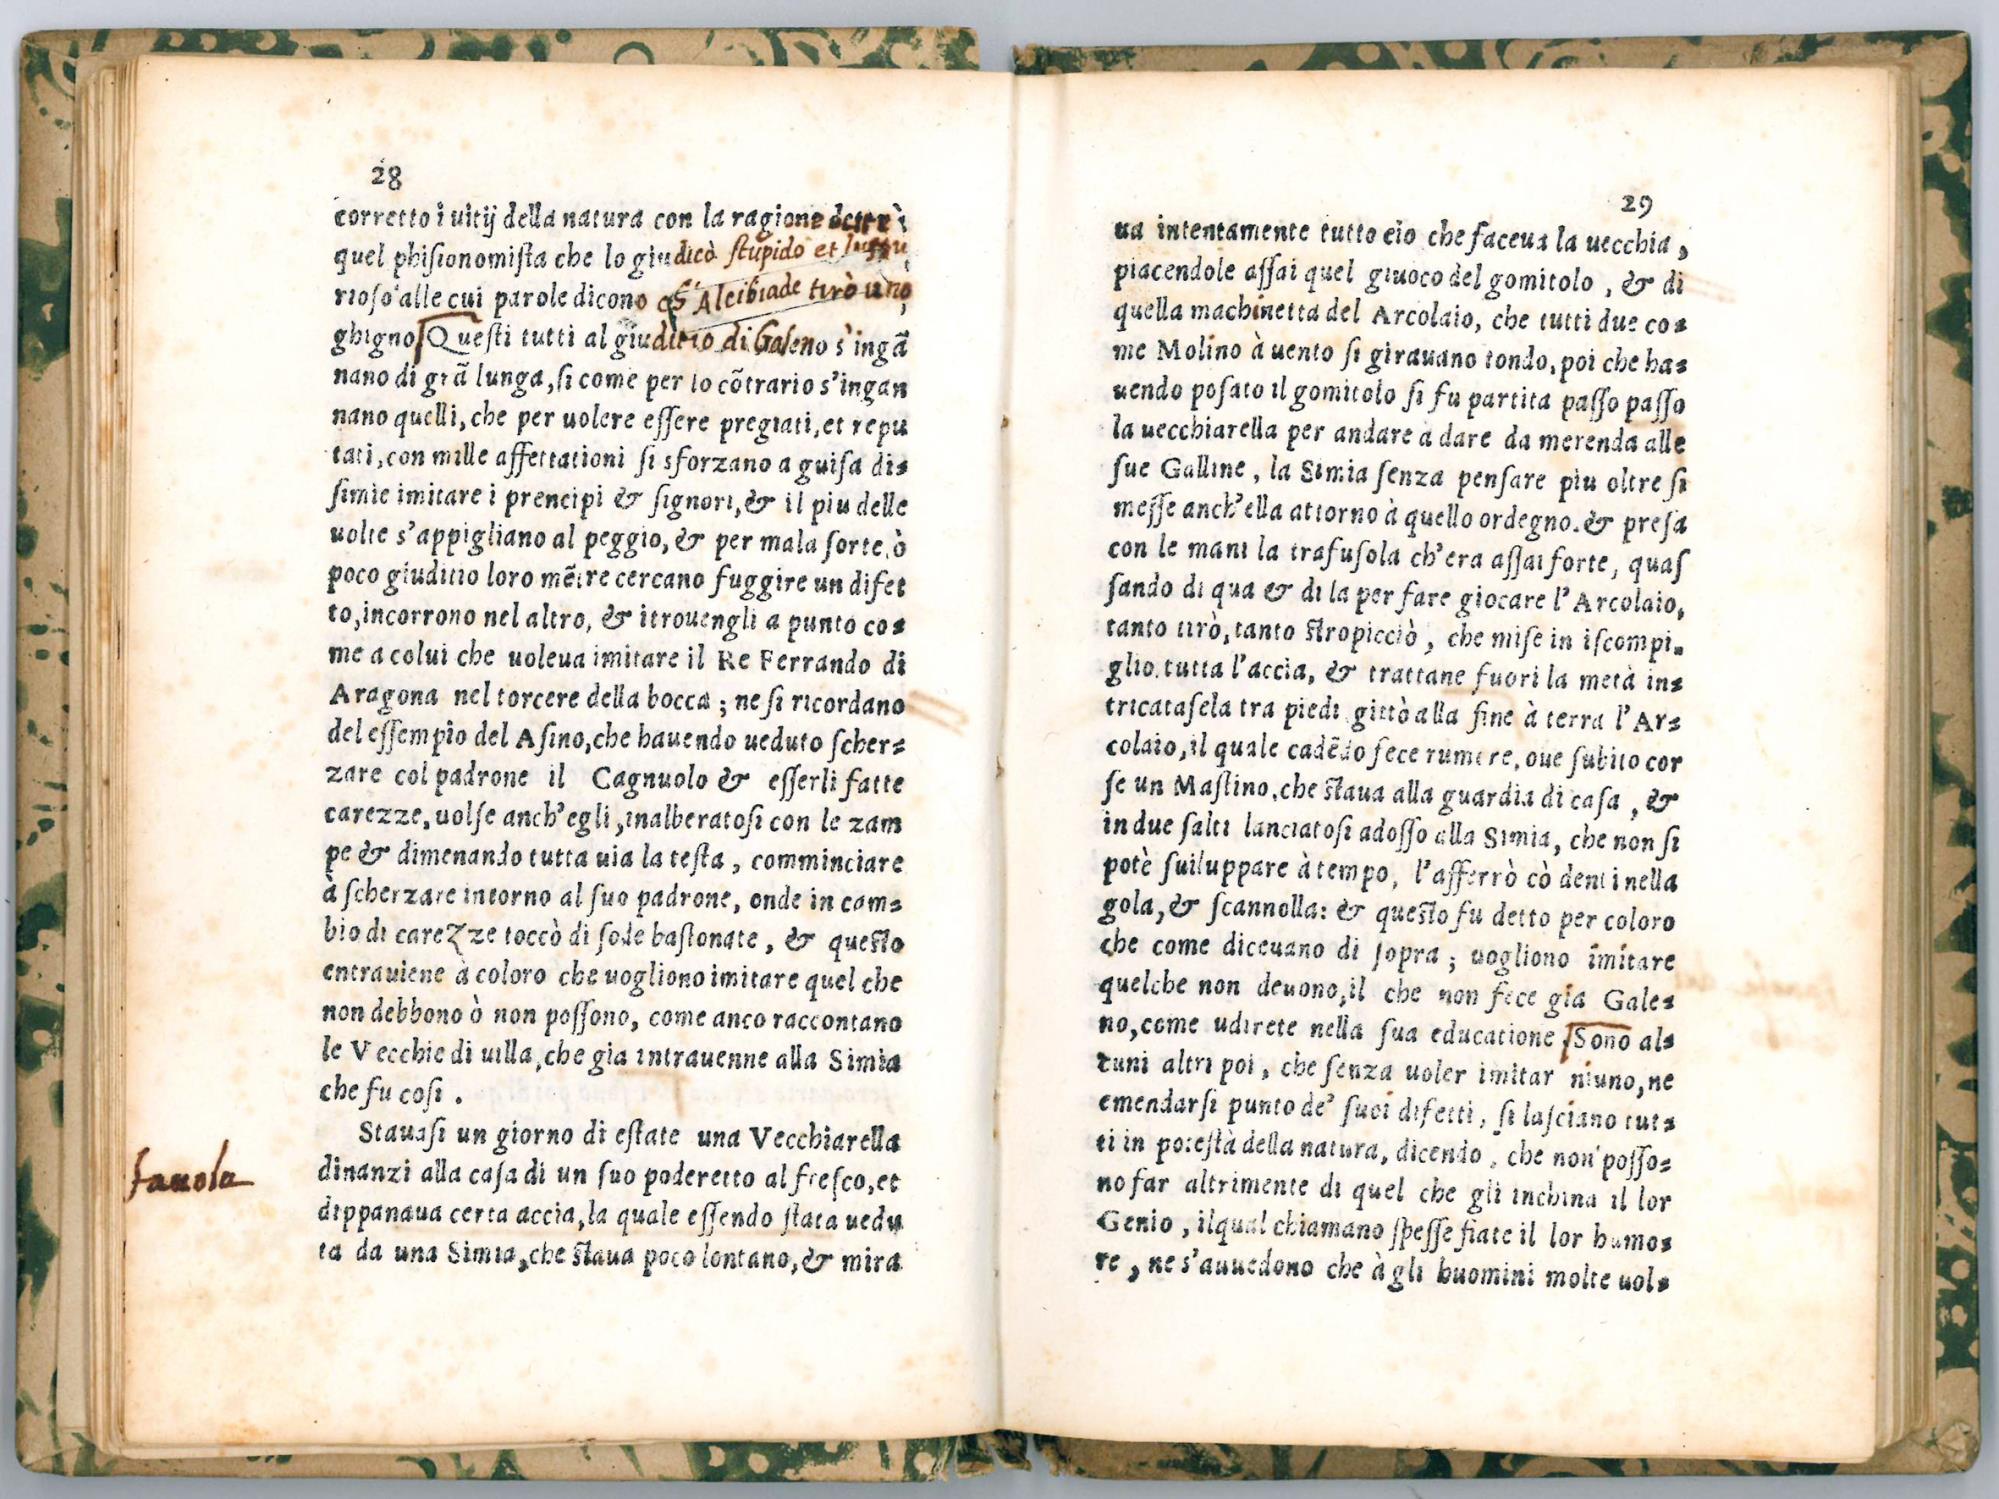 28
corretto i uitij della natura con la ragione dette ì
quel phisionomista che lo giudicò stupido et lussu
rioso alle cui parole dicono che Alcibiade tirò uno
ghigno Questi tutti al giuditio di Galeno s'ingã
nano di grã lunga, si come per lo cõtrario s'ingan
nano quelli, che per uolere essere pregiati, et repu
tati, con mille affettationi si sforzano a guisa di=
simie imitare i prencipi & signori, & il piu delle
uolte s'appigliano al peggio, & per mala sorte, ò
poco giuditio loro mẽtre cercano fuggire un difet
to, incorrono nel altro, & itrouengli a punto co=
me a colui che uoleua imitare il Re Ferrando di
Aragona nel torcere della bocca; ne si ricordano
del essempio del Asino, che hauendo ueduto scher=
zare col padrone il Cagnuolo & esserli fatte
carezze, uolse anch'egli, inalberatosi con le zam
pe & dimenando tutta uia la testa, comminciare
à scherzare intorno al suo padrone, onde in cam=
bio di carezze toccò di sode bastonate, & questo
entrauiene à coloro che uogliono imitare quel che
non debbono ò non possono, come anco raccontano
le Vecchie di uilla, che gia intrauenne alla Simia
che fu cosi.
Stauasi un giorno di estate una Vecchiarella
fauola
dinanzi alla casa di un suo poderetto al fresco, et
dippanaua certa accia, la quale essendo stata uedu
ta da una Simia, che staua poco lontano, & mira
29
ua intentamente tutto cio che faceua la uecchia,
piacendole assai quel giuoco del gomitolo, & di
quella machinetta del Arcolaio, che tutti due co=
me Molino à uento si girauano tondo, poi che ha=
uendo posato il gomitolo si fu partita passo passo
la uecchiarella per andare a dare da merenda alle
sue Galline, la Simia senza pensare piu oltre si
messe anch'ella attorno à quello ordegno. & presa
con le mani la trafusola ch'era assai forte, quas
sando di qua & di la per fare giocare l'Arcolaio,
tanto tirò, tanto stropicciò, che mise in iscompi=
glio tutta l'accia, & trattane fuori la metà in=
tricatasela tra piedi gittò alla fine à terra l'Ar=
colaio, il quale cadẽdo fece rumore, oue subito cor
se un Mastino, che staua alla guardia di casa, &
in due salti lanciatosi adosso alla Simia, che non si
potè suiluppare à tempo, l'afferrò cò denti nella
gola, & scannolla: & questo fu detto per coloro
che come diceuano di sopra; uogliono imitare
quelche non deuono, il che non fece gia Gale=
no, come udirete nella sua educatione Sono al=
cuni altri poi, che senza uoler imitar niuno, ne
emendarsi punto de' suoi difetti, si lasciano tut=
ti in potestà della natura, dicendo, che non posso=
no far altrimente di quel che gli inchina il lor
Genio, ilqual chiamano spesse fiate il lor humo=
re, ne s'auuedono che à gli huomini molte uol=